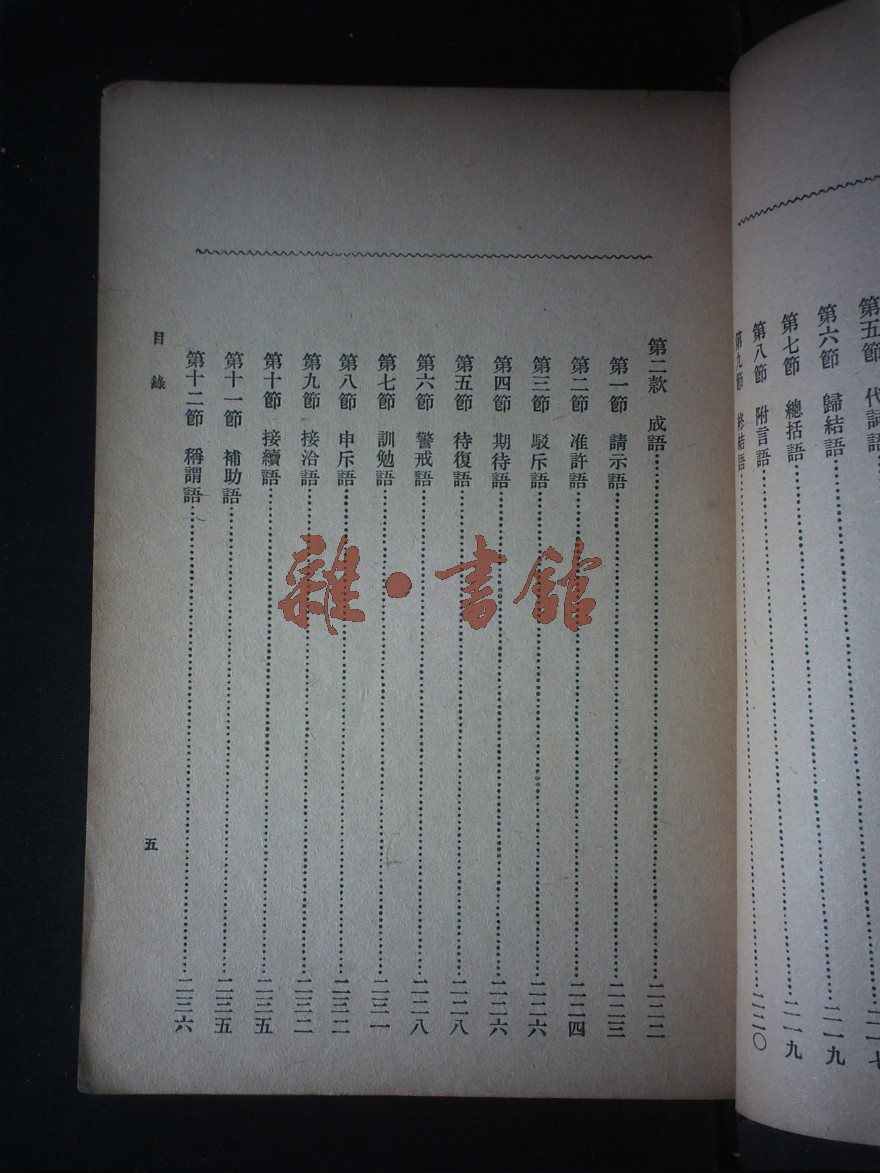 第五節 代詞語
第六節 歸結語……二一九
第七節 總括語……二一九
第八節 附言語……二二〇
第九節 終結語……
第二款 成語……二二二
第一節 請示語……二二三
第二節 准許語……二二四
第三節 駁斥語……二二六
第四節 期待語……二二六
第五節 待復語……二二八
第六節 警戒語……二二八
第七節 訓勉語……二三一
第八節 申斥語……二三二
第九節 接洽語……二三二
第十節 接續語……二三五
第十一節 補助語……二三五
第十二節 稱謂語……二三六
目錄
五
雜·書館